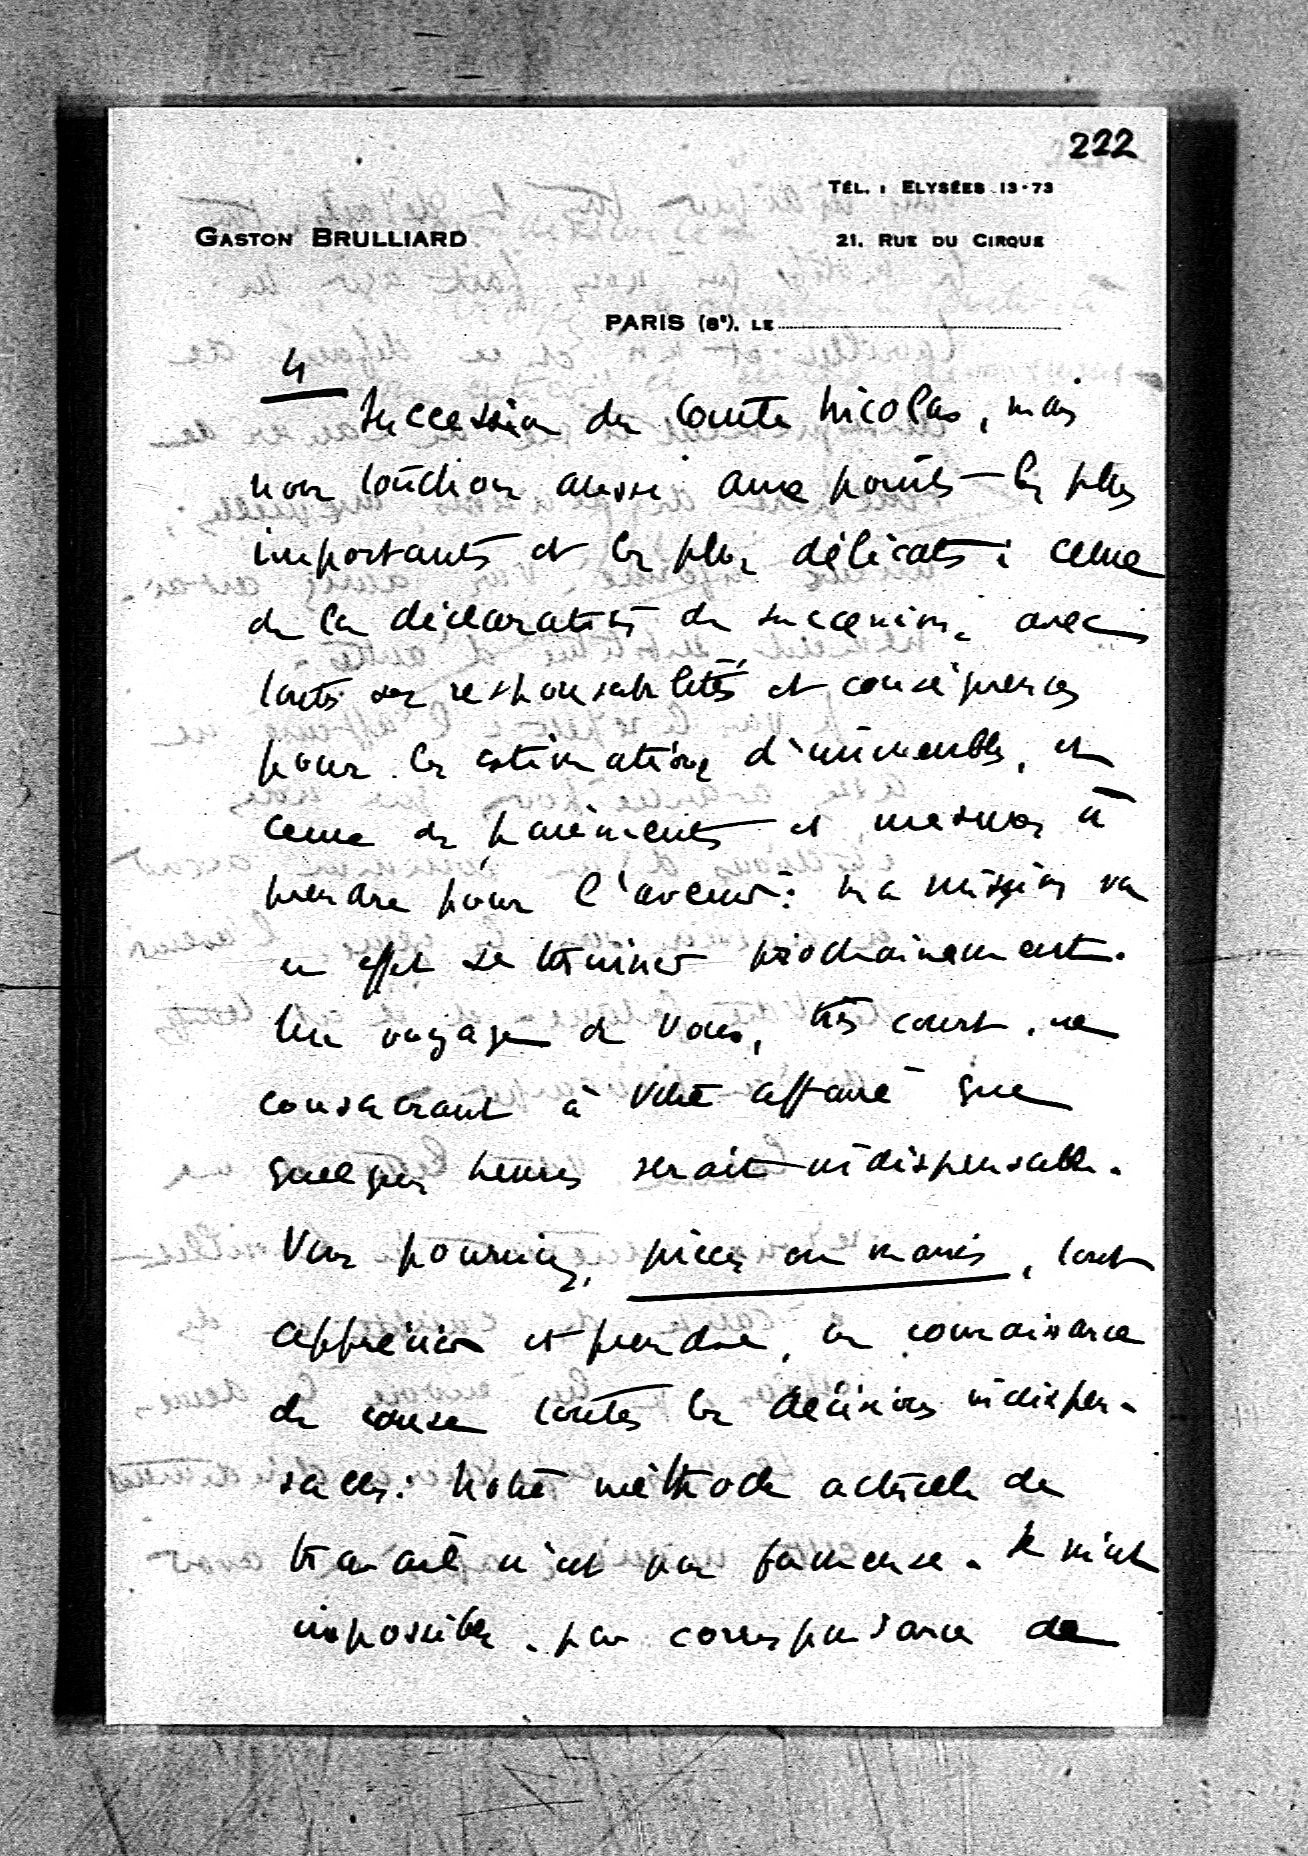 222
TÉL. : ELYSÉES 13-73
GASTON BRULLIARD
21, RUE DU CIRQUE
PARIS (8e), LE
4
succession du Comte Nicolas, mais
nous touchons aussi aux points les plus
importants et les plus délicats : ceux
de la déclaration de succession, avec
toutes ses responsabilités et conséquences
pour les estimations d'immeubles, et
ceux des paiements et mesures à
prendre pour l'avenir : ma mission va
en effet se terminer prochainement.
Un voyage de vous, très court, ne
consacrant à votre affaire que
quelques heures serait indispensable.
Vous pourriez, pièces en mains, tout
apprécier et prendre, en connaissance
de cause toutes les décisions indispen-
sables. Notre méthode actuelle de
travail n'est pas fameuse. Il m'est
impossible, par correspondance de